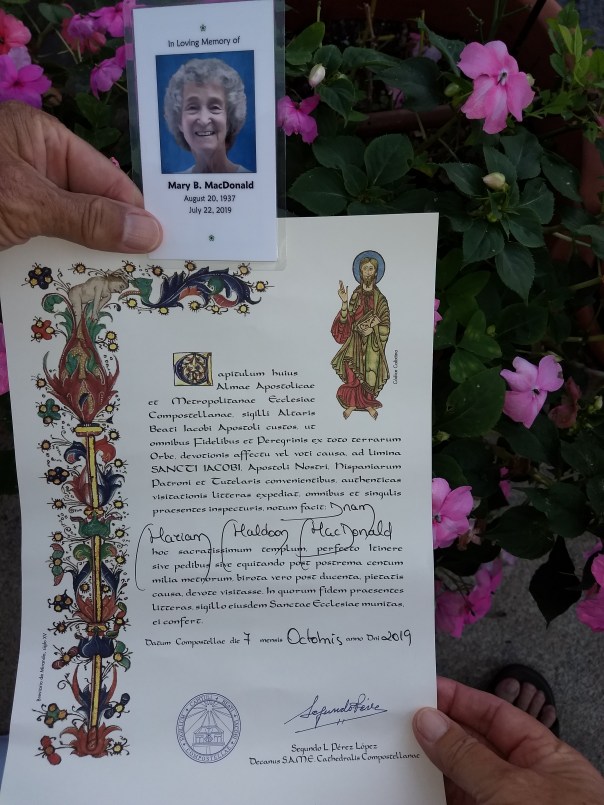 In Loving Memory of
Mary B. MacDonald
August 20, 1937
July 22, 2019
Capitulum huius
Almae Apostolicae
et Metropolitanae Ecclesiae
Compostellanae, sigilli Altaris
Beati Iacobi Apostoli custos, ut
omnibus Fidelibus et Peregrinis ex toto terrarum
Orbe, devotionis affectu vel voti causa, ad limina
SANCTI IACOBI, Apostoli Nostri, Hispaniarum
Patroni et Tutelaris convenientibus, authenticas
visitationis litteras expediat, omnibus et singulis
praesentes inspecturis, notum facit: Dnam
Mariam Muldoon MacDonald
hoc sacratissimum templum, perfecto Itinere
sive pedibus sive equitando post postrema centum
milia metrorum, birota vero post ducenta, pietatis
causa, devote visitasse. In quorum fidem praesentes
litteras, sigillo eiusdem Sanctae Ecclesiae munitas,
ei confert.
Datum Compostellae die 7 mensis Octobris anno Dni 2019
Segundo L. Pérez López
Decanus S.A.M.E. Cathedralis Compostellanae
Códice Calixtino